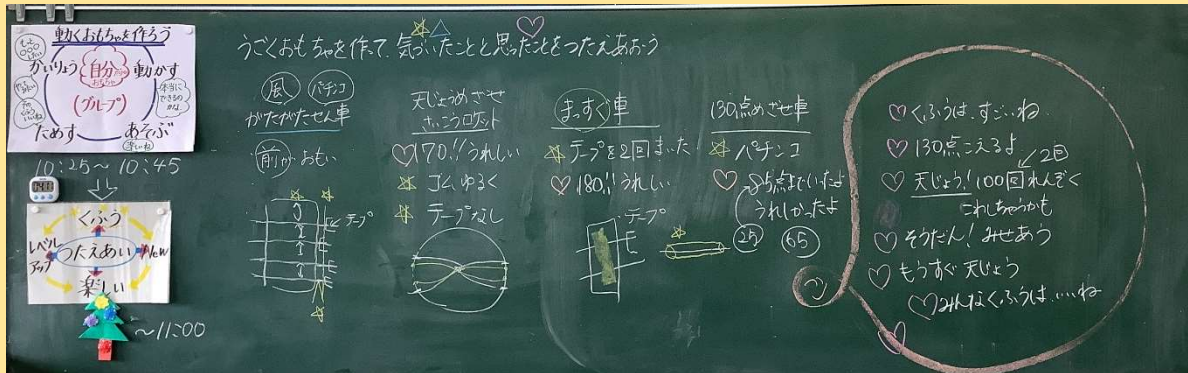 動くおもちゃを作ろう
かいりょう
自分
動かす
(グループ)
本当に
できるの
かな
ためす
あそぶ
楽しいね
10:25～10:45
くふう
レベル
アップ
つたえあい
New
楽しい
～11:00
うごくおもちゃを作って、気づいたことと思ったことをつたえあおう
風
パチンコ
がたがたせん車
前がおもい
テープ
天じょうめざせ
さいこうロケット
170!!うれしい
ゴムゆるく
テープなし
まっすぐ車
テープを2回まいた
180!!うれしい
テープ
130点めざせ車
パチンコ
85点までいったよ
うれしかったよ
25
65
くふうは、すごいね
130点こえるよ
2回
天じょう!100回れんぞく
これしちゃうかも
そうだん!みせあう
もうすぐ天じょう
みんなくふうは、いいね